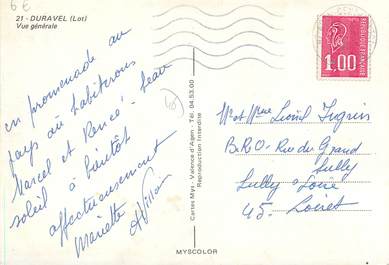 6€
21 - DURAVEL (Lot)
Vue générale
en promenade au
pays où habiterons
Marcel et Renée - beau
soleil à bientôt
affectueusement
Mariette
REPUBLIQUE FRANÇAISE
1,00
Cartes Mys - Valence d'Agen - Tél. 04.53.00
Reproduction Interdite
Mr et Mme Lionel
B.R.O. Rue du Grand
Sully
Sully s/ Loire
45. Loiret
MYSCOLOR